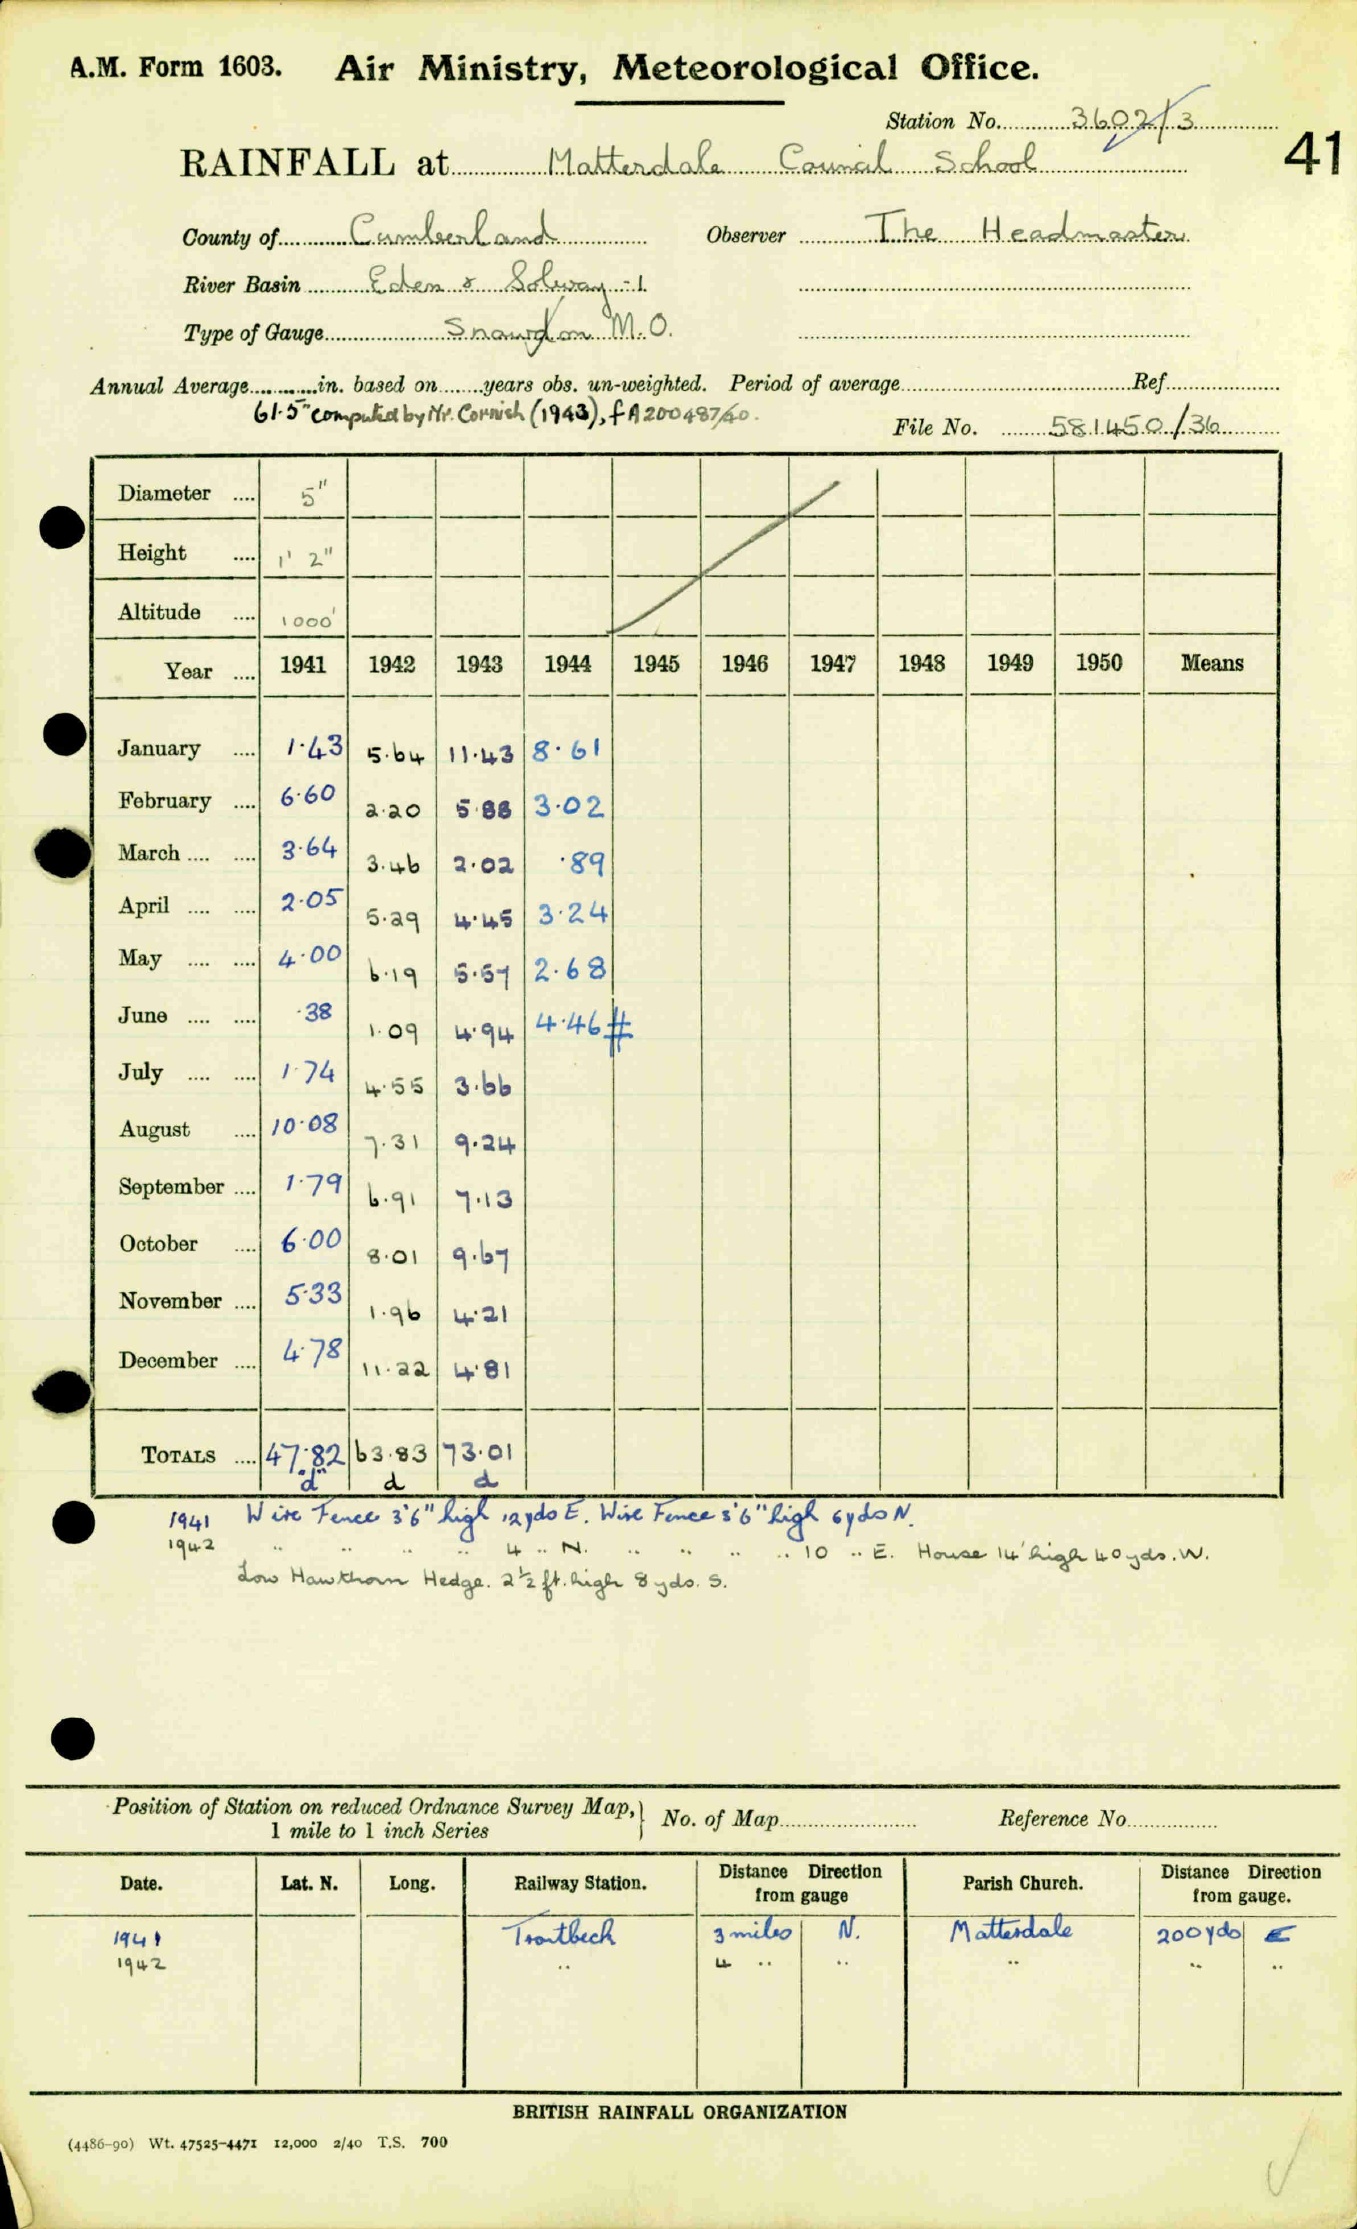 A.M. Form 1603. Air Ministry, Meteorological Office.
Station No. 3602/3
41
RAINFALL at Matterdale Council School
County of Cumberland Observer The Headmaster
River Basin Eden & Solway -1
Type of Gauge Snowdon M.O.
Annual Average in. based on years obs. un-weighted. Period of average Ref
61.5" computed by Mr. Cornish (1943), f A200487/40.
File No. 581450/36
Diameter .... 5"
Height .... 1' 2"
Altitude .... 1000'
Year .... 1941 1942 1943 1944 1945 1946 1947 1948 1949 1950 Means
January .... 1.43 5.64 11.43 8.61
February .... 6.60 2.20 5.88 3.02
March .... .... 3.64 3.46 2.02 .89
April .... .... 2.05 5.29 4.45 3.24
May .... .... 4.00 6.19 5.57 2.68
June .... .... .38 1.09 4.94 4.46 #
July .... .... 1.74 4.55 3.66
August .... 10.08 7.31 9.24
September .... 1.79 6.91 7.13
October .... 6.00 8.01 9.67
November .... 5.33 1.96 4.21
December .... 4.78 11.22 4.81
TOTALS .... 47.82 63.83 73.01
"d" d d
1941 Wire Fence 3'6" high 12yds E. Wire Fence 3'6" high 6yds N.
1942 " " " " 4 " N. " " " " 10 " E. House 14' high 40yds. W.
Low Hawthorn Hedge. 2½ ft. high 8 yds. S.
Position of Station on reduced Ordnance Survey Map, } No. of Map Reference No
1 mile to 1 inch Series
Date. Lat. N. Long. Railway Station. Distance Direction from gauge Parish Church. Distance Direction from gauge.
1941 Troutbeck 3 miles N. Matterdale 200 yds E
1942 " 4 " " " " "
BRITISH RAINFALL ORGANIZATION
(4486-90) Wt. 47525-4471 12,000 2/40 T.S. 700